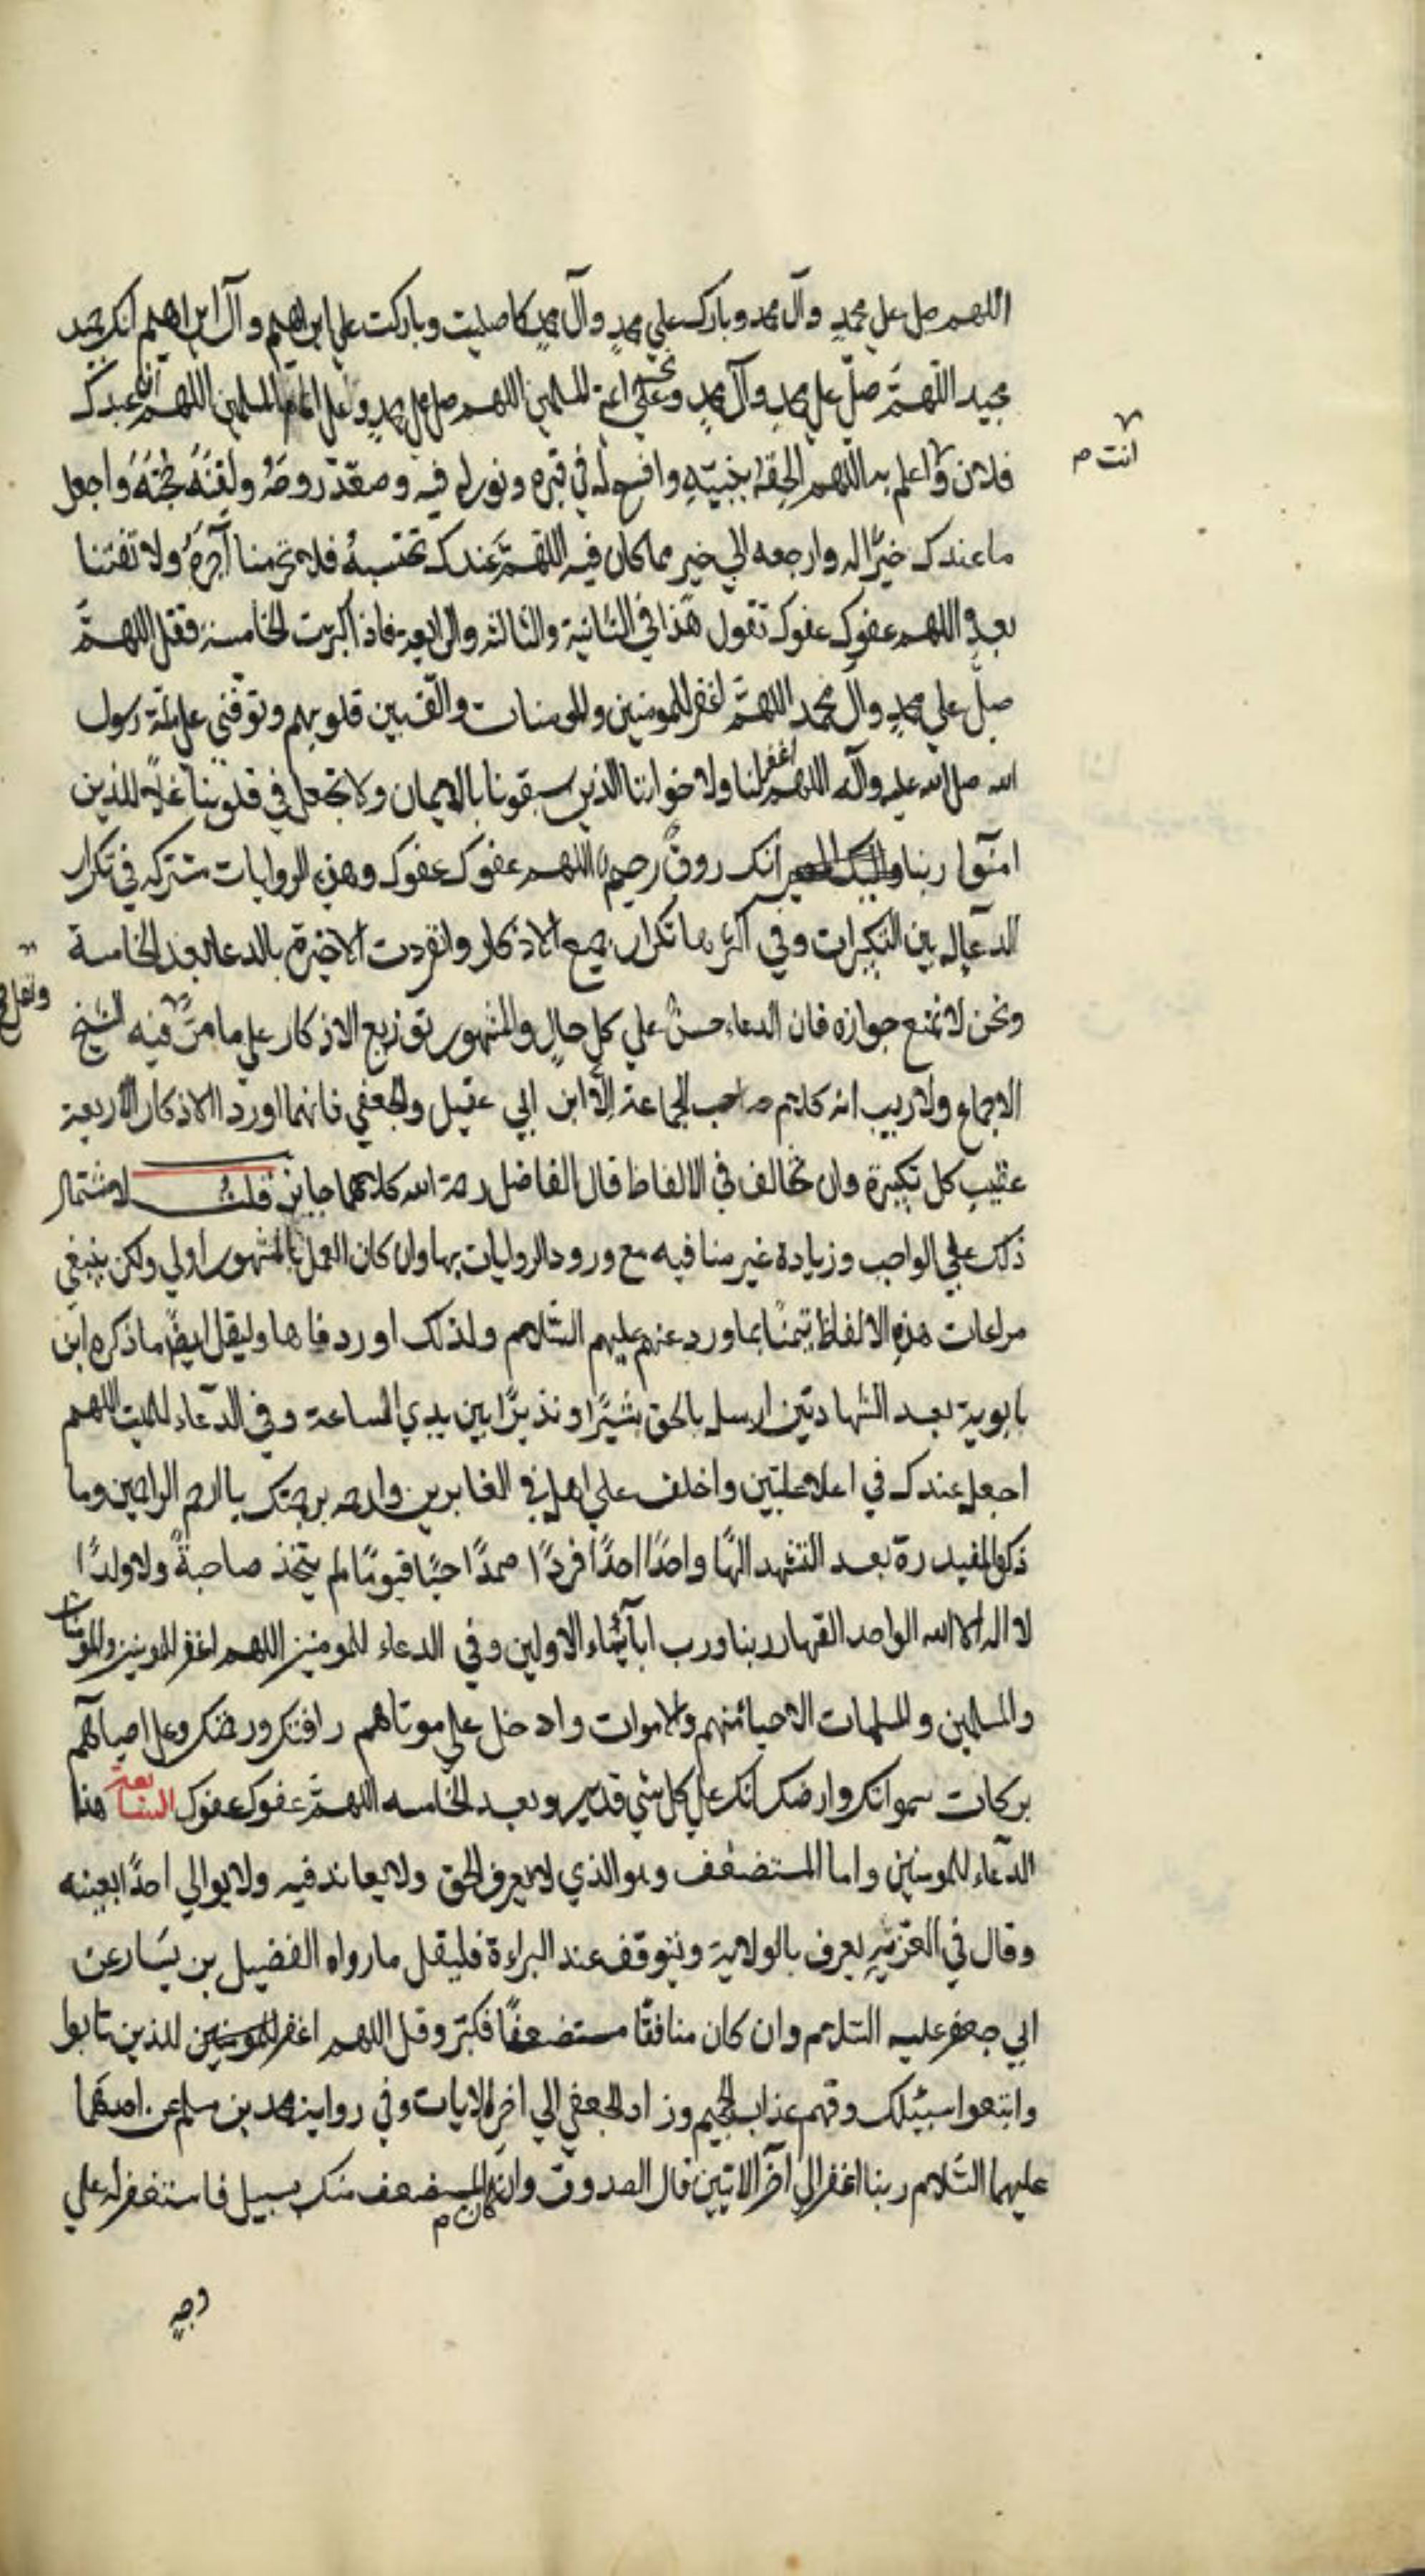 اللهم صل علي محمدٍ وآل محمد وبارك علي محمدٍ وآل محمدٍ كما صليت وباركت علي ابراهيم وآل ابراهيم انك حميد
مجيد اللّهمَّ صلّ علي محمدٍ وآل محمدٍ وعلي ائمة المسلمين اللهم صل علي محمدٍ وعلي امام المسلمين اللهم عبدك
انت م
فلان واعلم به اللهم الحقه بنبيّهِ وافسح له في قبره ونور له فيه وصعّد روحَهُ ولقِّنَهُ حجّتَهُ واجعل
ما عندك خيرًا له وارجعه الي خير مما كان فيه اللهمَّ عندك نحتسبهُ فلا تحرمنا اَجرَهُ ولا تفتنا
بعدهِ اللهم عفوك عفوك تقول هذا في الثانية والثالثه والرابعة فاذا كبرت الخامسة فقل اللهمَّ
صلّ علي محمدٍ وآل محمد اللهمَّ اغفر للمومنين والمومنات والّف بين قلوبهم وتوفّني علي ملّة رسول
الله صلي الله عليه وآله اللهم اغفر لنا ولاخواننا الذين سبقونا بالايمان ولا تجعل في قلوبنا غلًا للذين
امنوا ربنا انك روفٌ رحيم اللهم عفوك عفوك وهذه الروايات مشتركه في تكرار
الدعاله بين التكبيرات وفي اكثرها تكرار جميع الاذكار وانفردت الاخيرة بالدعا بعد الخامسة
ونحن لا نمنع جوازه فان الدعاء حسنٌ علي كل حالٍ والمشهور توزيع الاذكار علي ما مرّ فيه الشيخ
ونقل
الاجماع ولا ريب انه كلام الجماعة الّا ابن ابي عقيل والجعفي فانهما اوردا الاذكار الاربعة
عقيب كل تكبيرة وان تخالفا في الالفاظ قال الفاضل رحمة الله كلاهما جايز قلت لاشتمال
ذلك علي الواجب وزيادة غير منافيه مع ورود الروايات بها وان كان العمل بالمشهور اولي ولكن ينبغي
مراعات هذه الالفاظ تيمنًا بما ورد عنهم عليهم السّلام ولذلك اوردناها وليقل ايضًا ما ذكره ابن
بابوية بعد الشهادتين ارسله بالحق بشيرًا ونذيرًا بين يدي الساعة وفي الدّعاء للميت اللهم
اجعله عندك في اعلا علّيّين واخلف علي اهله في الغابرين وارحمه برحمتك يا ارحم الراحمين وما
ذكره المفيد رة بعد التشهد الهًا واحدًا احدًا فردًا صمدًا حيًا قيومًا لم يتخذ صاحبةً ولا ولدًا
لا اله الا الله الواحد القهار ربنا ورب ابآئنا الاولين وفي الدعاء للمومنين اللهم اغفر للمومنين والمومنات
والمسلمين والمسلمات الاحيا منهم والاموات وادخل علي موتاهم رافتك ورحمتك وعلي احيآئهم
بركات سمواتك وارضك انك علي كل شي قدير وبعد الخامسه اللهمَّ عفوك عفوك السابعة هذا
الدعاء للمومنين واما المستضعف وهو الذي لا يعرف الحق ولا يعاند فيه ولا يوالي احدًا بعينه
وقال في العزّية يعرف بالولاية ويتوقف عند البراءة فليقل ما رواه الفضيل بن يسار عن
ابي جعفر عليه السّلام وان كان منافقًا مستضعفًا فكبّر وقل اللهم اغفر للذين تابوا
واتبعوا سبيلك وقهم عذاب الجحيم وزاد الجعفي الي اخر الايات وفي رواية محمد بن مسلم عن احدهما
عليهما السّلام ربنا اغفر الي آخر الاتيين قال الصدوق وان كان المستضعف منك بسبيل فاستغفر له علي
وجه